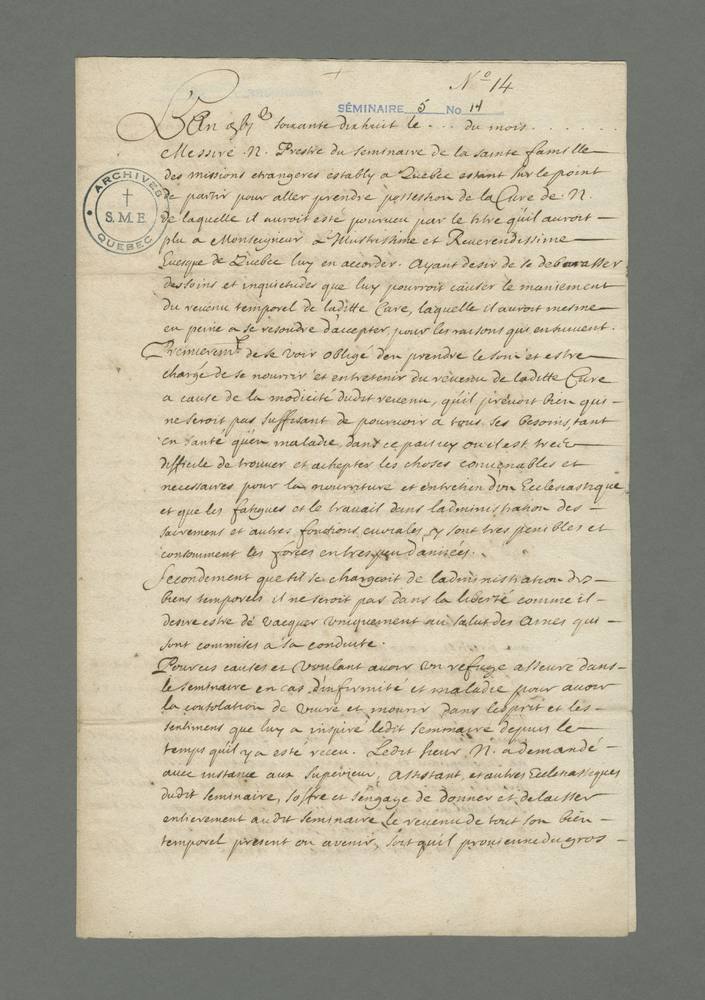 No 14
SÉMINAIRE 5 No 14
L'An soixante dixhuit le . . . du mois . . . . . .
Messire . N . Prestre du seminaire de la sainte famille
des missions etrangeres estably a Quebec estant sur le point
de partir pour aller prendre possession de la Cure de . N .
de laquelle il auroit esté pourveu par le titre qu'il auroit
plu a Monseigneur L'Illustrissime et Reverendissime
Evesque de Quebec luy en accorder . Ayant desir de se debarasser
des soins et inquietudes que luy pourroit causer le maniement
du revenu temporel de laditte Cure, laquelle il auroit mesme
eu peine a se resoudre d'accepter, pour les raisons qui ensuivent .
Premieremt de se voir obligé d'en prendre le soin et estre
chargé de se nourrir et entretenir du revenu de laditte Cure
a cause de la modicité dudit revenu, qu'il prevoit bien qui
ne seroit pas suffisant de pourvoir a tous ses besoins, tant
en santé qu'en maladie, dans ce pais icy ou il est tres
difficile de trouver et achepter les choses convenables et
necessaires pour la nourriture et entretien d'un Ecclesiastique
et que les fatigues et le travail dans l'administration des
sacremens et autres fonctions curiales y sont tres penibles et
consomment les forces en tres peu d'années .
Secondement que s'il se chargeoit de l'administration des
biens temporels il ne seroit pas dans la liberté comme il
desire estre de vacquer uniquement au salut des Ames qui
sont commises a sa conduite .
Pour ces causes et voulant avoir un refuge asseuré dans
le seminaire en cas d'infirmité et maladie pour avoir
la consolation de vivre et mourir dans l'esprit et les
sentimens que luy a inspiré ledit seminaire depuis le
temps qu'il y a esté receu . Ledit sieur N . a demandé
avec instance aux Superieur, Assistant, et autres Ecclesiastiques
dudit seminaire, s'offre et s'engage de donner et delaisser
entierement audit Seminaire le revenu de tout son bien
temporel present ou avenir, soit qu'il provienne du gros
ARCHIVES
S.M.E.
QUEBEC